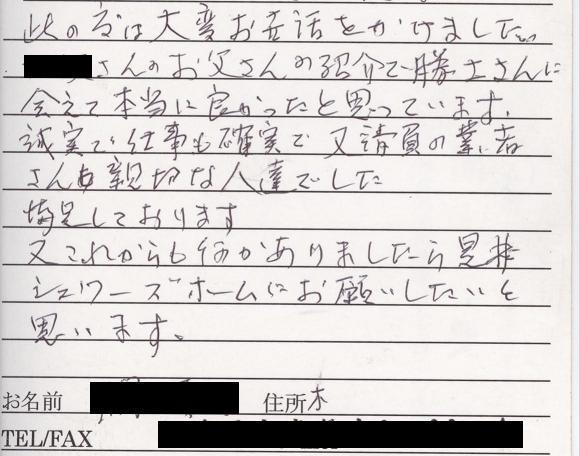 此の度は大変お世話をかけました。
さんのお父さんの紹介で勝士さんに
会えて本当に良かったと思っています。
誠実で仕事も確実で又請負の業者
さんも親切な人達でした
満足しております
又これからも何かありましたら是非
シュワーズホームにお願いしたいと
思います。
お名前 住所
TEL/FAX